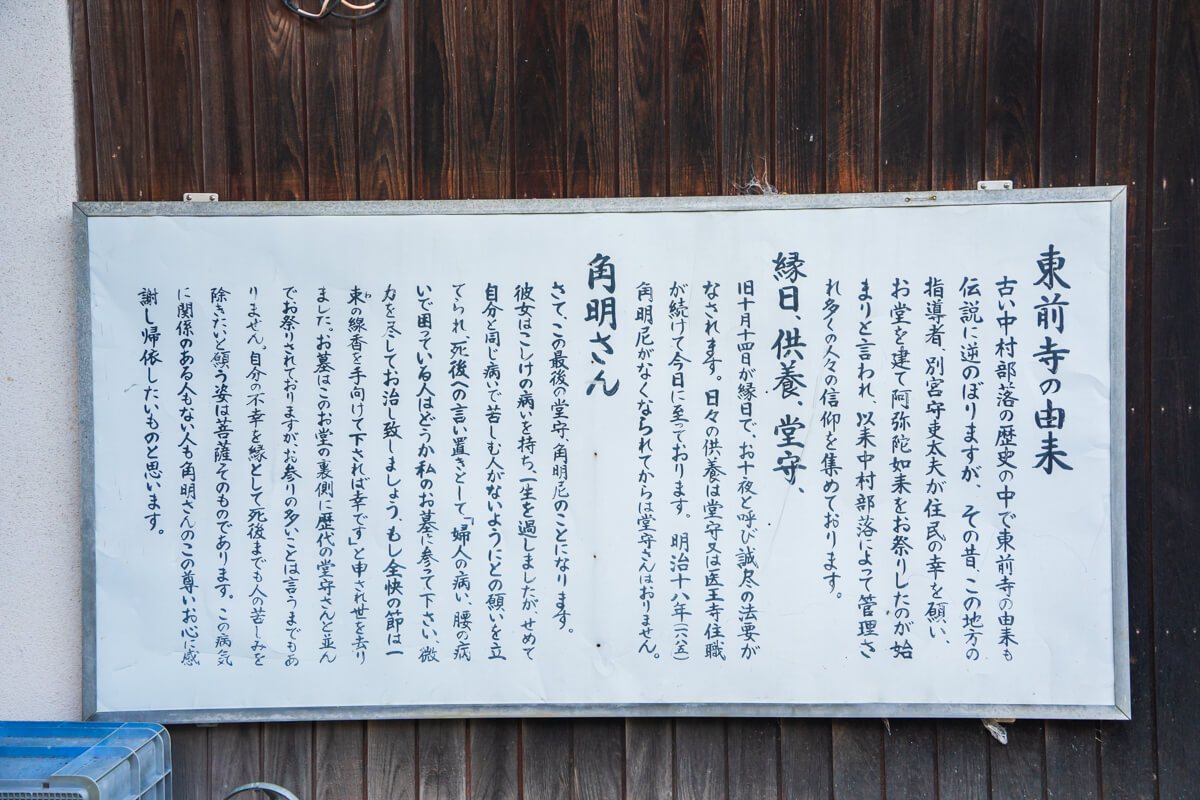 東前寺の由来
古い中村部落の歴史の中で東前寺の由来も
伝説に逆のぼりますが、その昔、この地方の
指導者、別宮守吏太夫が住民の幸を願い、
お堂を建て阿弥陀如来をお祭りしたのが始
まりと言われ、以来中村部落によって管理さ
れ多くの人々の信仰を集めております。
縁日、供養、堂守、
旧十月十四日が縁日で、お十夜と呼び誠尽の法要が
なされます。日々の供養は堂守又は医王寺住職
が続けて今日に至っております。明治十八年(一八八五)
角明尼がなくなられてからは堂守さんはおりません。
角明さん
さて、この最後の堂守、角明尼のことになります。
彼女はこしけの病いを持ち、一生を過しましたが、せめて
自分と同じ病いで苦しむ人がないようにとの願いを立
てられ、死後への言い置きとして、「婦人の病い、腰の病
いで困っている人はどうか私のお墓に参って下さい、微
力を尽してお治し致しましょう、もし全快の節は一
束の線香を手向けて下されば幸です」と申され世を去り
ました。お墓はこのお堂の裏側に歴代の堂守さんと並ん
でお祭りされておりますが、お参りの多いことは言うまでもあ
りません。自分の不幸を縁として死後までも人の苦しみを
除きたいと願う姿は菩薩そのものであります。この病気
に関係のある人もない人も角明さんのこの尊いお心に感
謝し帰依したいものと思います。